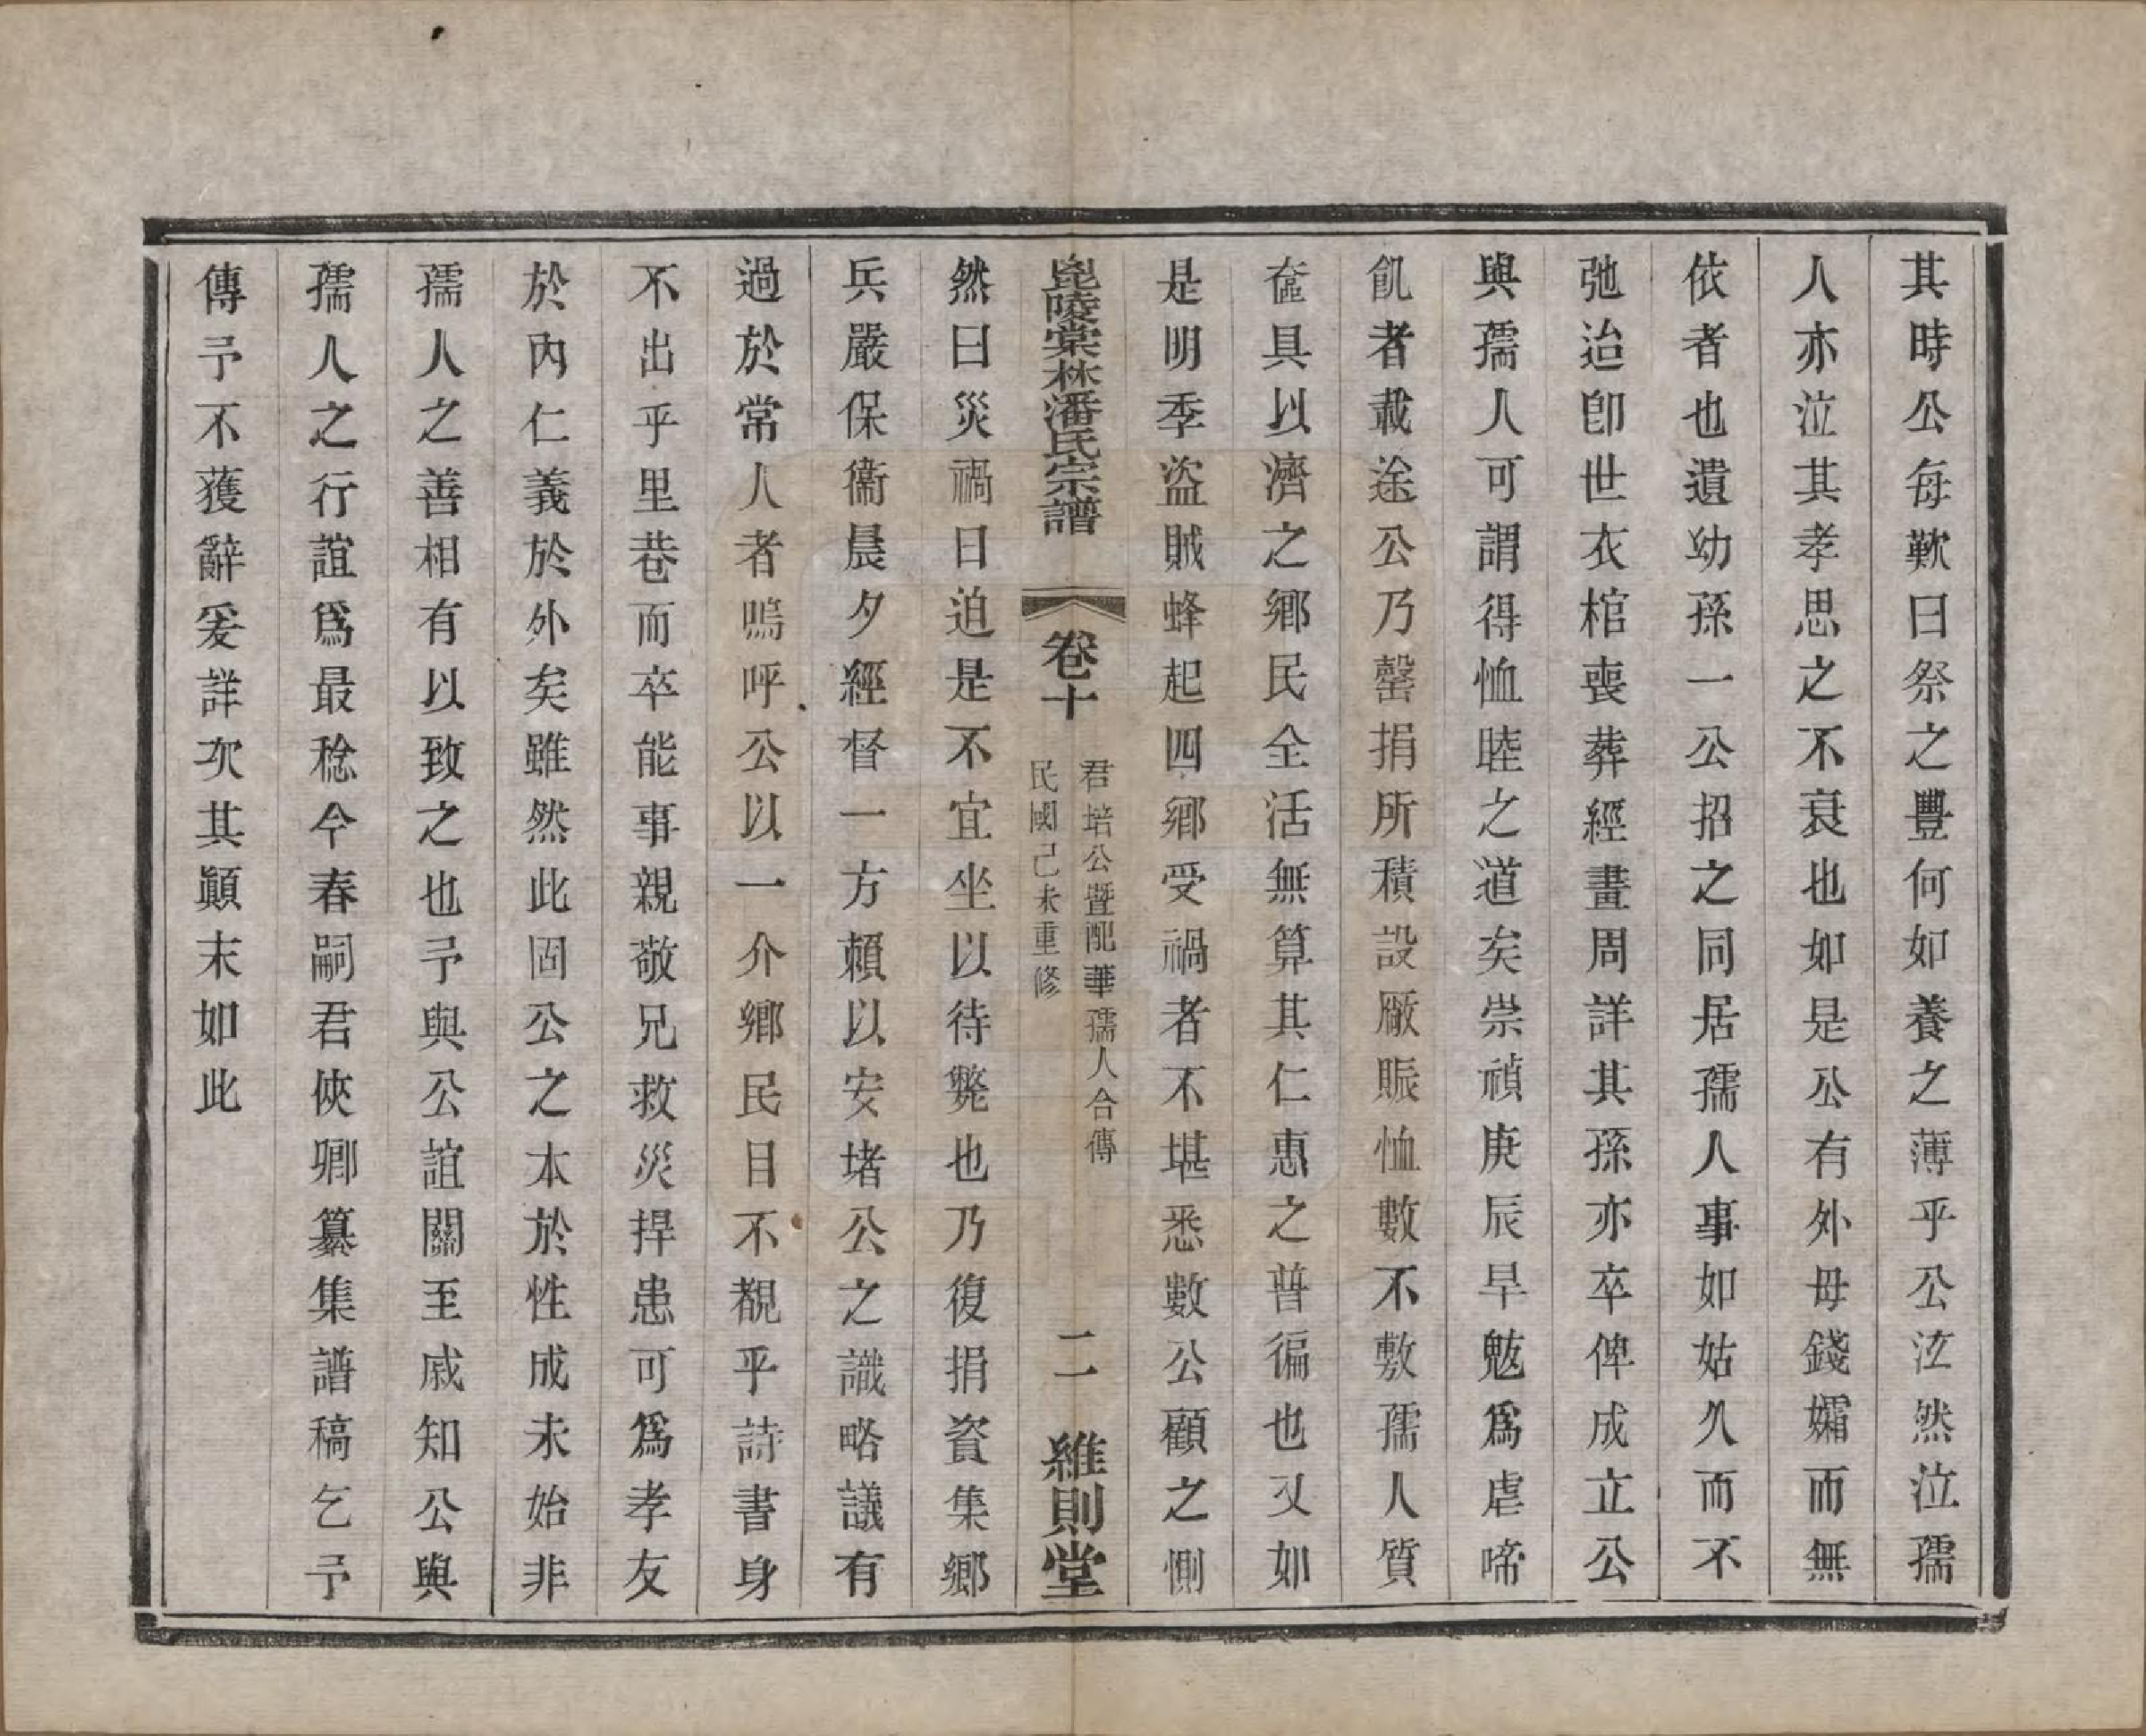 其時公每歎曰祭之豐何如養之薄乎公泫然泣孺
人亦泣其孝思之不衰也如是公有外母錢孀而無
依者也遺幼孫一公招之同居孺人事如姑久而不
弛迨卽世衣棺喪葬經畫周詳其孫亦卒俾成立公
與孺人可謂得恤睦之道矣崇禎庚辰旱魃爲虐啼
飢者載途公乃罄捐所積設廠賑恤數不敷孺人質
奩具以濟之鄉民全活無算其仁惠之普徧也又如
是明季盜賊蜂起四鄉受禍者不堪悉數公顧之惻
毘陵棠林潘氏宗譜
卷十
君培公暨配華孺人合傳
民國己未重修
二
維則堂
然曰災禍日迫是不宜坐以待斃也乃復捐資集鄉
兵嚴保衞晨夕經督一方賴以安堵公之識略議有
過於常人者嗚呼公以一介鄉民目不覩乎詩書身
不出乎里巷而卒能事親敬兄救災捍患可爲孝友
於內仁義於外矣雖然此固公之本於性成未始非
孺人之善相有以致之也予與公誼關至戚知公與
孺人之行誼爲最稔今春嗣君俠卿纂集譜稿乞予
傳予不獲辭爰詳次其顚末如此